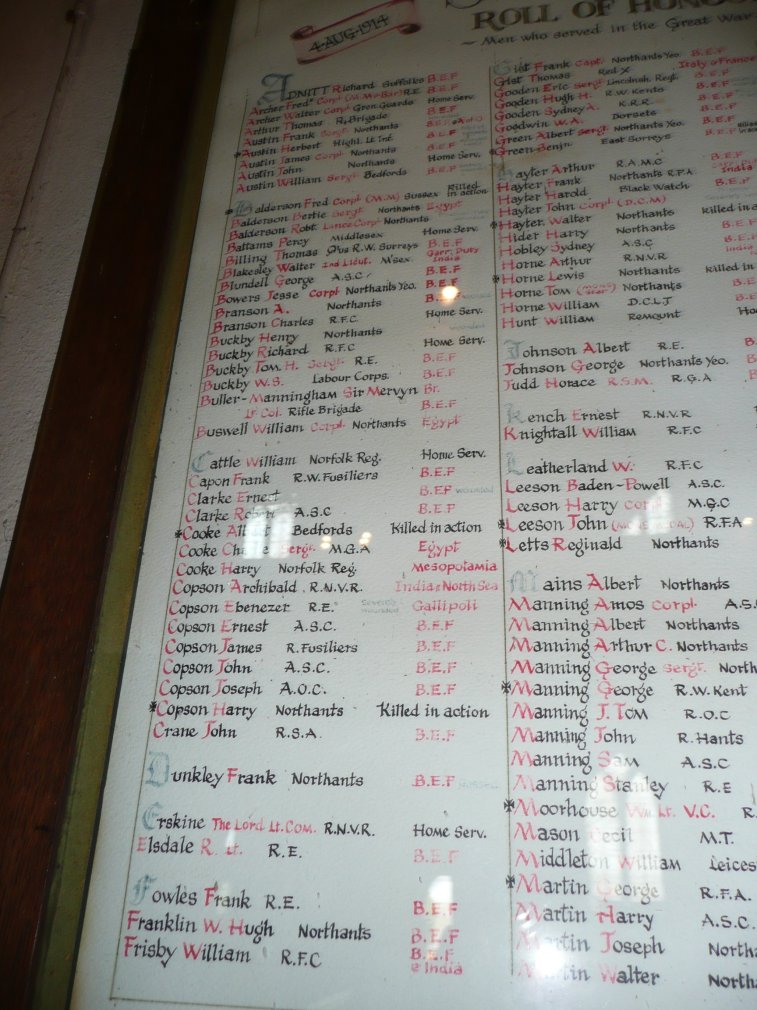 4·AUG·1914
ROLL OF HONOUR
~ Men who served in the Great War
ADNITT Richard Suffolks B.E.F
Archer Fredk Corpl R.E. B.E.F
Archer Walter Corpl Gren: Guards Home Serv.
Arthur Thomas R. Brigade B.E.F
Austin Frank Northants B.E.F
Austin Herbert Highl. Lt. Inf.
Austin James Corpl Northants B.E.F
Austin John Northants Home Serv.
Austin William Sergt. Bedfords B.E.F
Balderson Fred Corpl (M.M) Sussex Killed in action
Balderson Bertie Sergt. Northants Egypt
Balderson Robt. Lance Corpl Northants
Battams Percy Middlesex Home Serv.
Billing Thomas R.W. Surreys B.E.F
Blakesley Walter 2nd Lieut. M'sex Garr: Duty India
Blundell George A.S.C. B.E.F
Bowers Jesse Corpl Northants Yeo. B.E.F
Branson A. Northants B.E.F
Branson Charles R.F.C. Home Serv.
Buckby Henry Northants wounded
Buckby Richard R.F.C Home Serv.
Buckby Tom H. Sergt. R.E. B.E.F
Buckby W.S. Labour Corps. B.E.F
Buller-Manningham Sir Mervyn Br.
Lt Col. Rifle Brigade B.E.F
Buswell William Corpl. Northants Egypt
Cattle William Norfolk Reg. Home Serv.
Capon Frank R.W. Fusiliers B.E.F
Clarke Ernest B.E.F wounded
Clarke Robert A.S.C B.E.F
Cooke Albert Bedfords Killed in action
Cooke Sergt. M.G.A Egypt
Cooke Harry Norfolk Reg. Mesopotamia
Copson Archibald R.N.V.R. India & North Sea
Copson Ebenezer R.E. Severely wounded Gallipoli
Copson Ernest A.S.C. B.E.F
Copson James R. Fusiliers B.E.F
Copson John A.S.C. B.E.F
Copson Joseph A.O.C. B.E.F
Copson Harry Northants Killed in action
Crane John R.S.A. B.E.F
Dunkley Frank Northants B.E.F
Erskine The Lord Lt. Com. R.N.V.R. Home Serv.
Elsdale R. Lt. R.E. B.E.F
Fowles Frank R.E. B.E.F
Franklin W. Hugh Northants B.E.F
Frisby William R.F.C B.E.F & India
Gist Frank Capt. Northants Yeo. B.E.F
Gist Thomas Red X Italy & France
Gooden Eric Sergt Lincolnsh. Regt. B.E.F
Gooden Hugh H. R.W. Kents B.E.F
Gooden Sydney A. K.R.R. B.E.F
Goodwin W.A. Dorsets B.E.F
Green Albert Sergt Northants Yeo. B.E.F
Green Benjn. East Surreys B.E.F
Hayter Arthur R.A.M.C
Hayter Frank Northants R.F.A. India
Hayter Harold Black Watch B.E.F
Hayter John Corpl (D.C.M)
Hayter Walter Northants Killed in
Hider Harry Northants B.E.F
Hobley Sydney A.S.C B.E.F
Horne Arthur R.N.V.R.
Horne Lewis Northants Killed in
Horne Tom Northants B.E.F
Horne William D.C.L.I
Hunt William Remount
Johnson Albert R.E.
Johnson George Northants Yeo.
Judd Horace R.S.M. R.G.A
Kench Ernest R.N.V.R
Knightall William R.F.C
Leatherland W. R.F.C
Leeson Baden-Powell A.S.C.
Leeson Harry Corpl M.G.C
Leeson John R.F.A
Letts Reginald Northants
Mains Albert Northants
Manning Amos Corpl A.S.
Manning Albert Northants
Manning Arthur C. Northants
Manning George Sergt. North
Manning George R.W. Kent
Manning J. Tom R.O.C
Manning John R. Hants
Manning Sam A.S.C
Manning Stanley R.E
Moorhouse Wm. Lt. V.C. R.
Mason Cecil M.T.
Middleton William Leices
Martin George R.F.A.
Martin Harry A.S.C.
Martin Joseph North
Martin Walter North